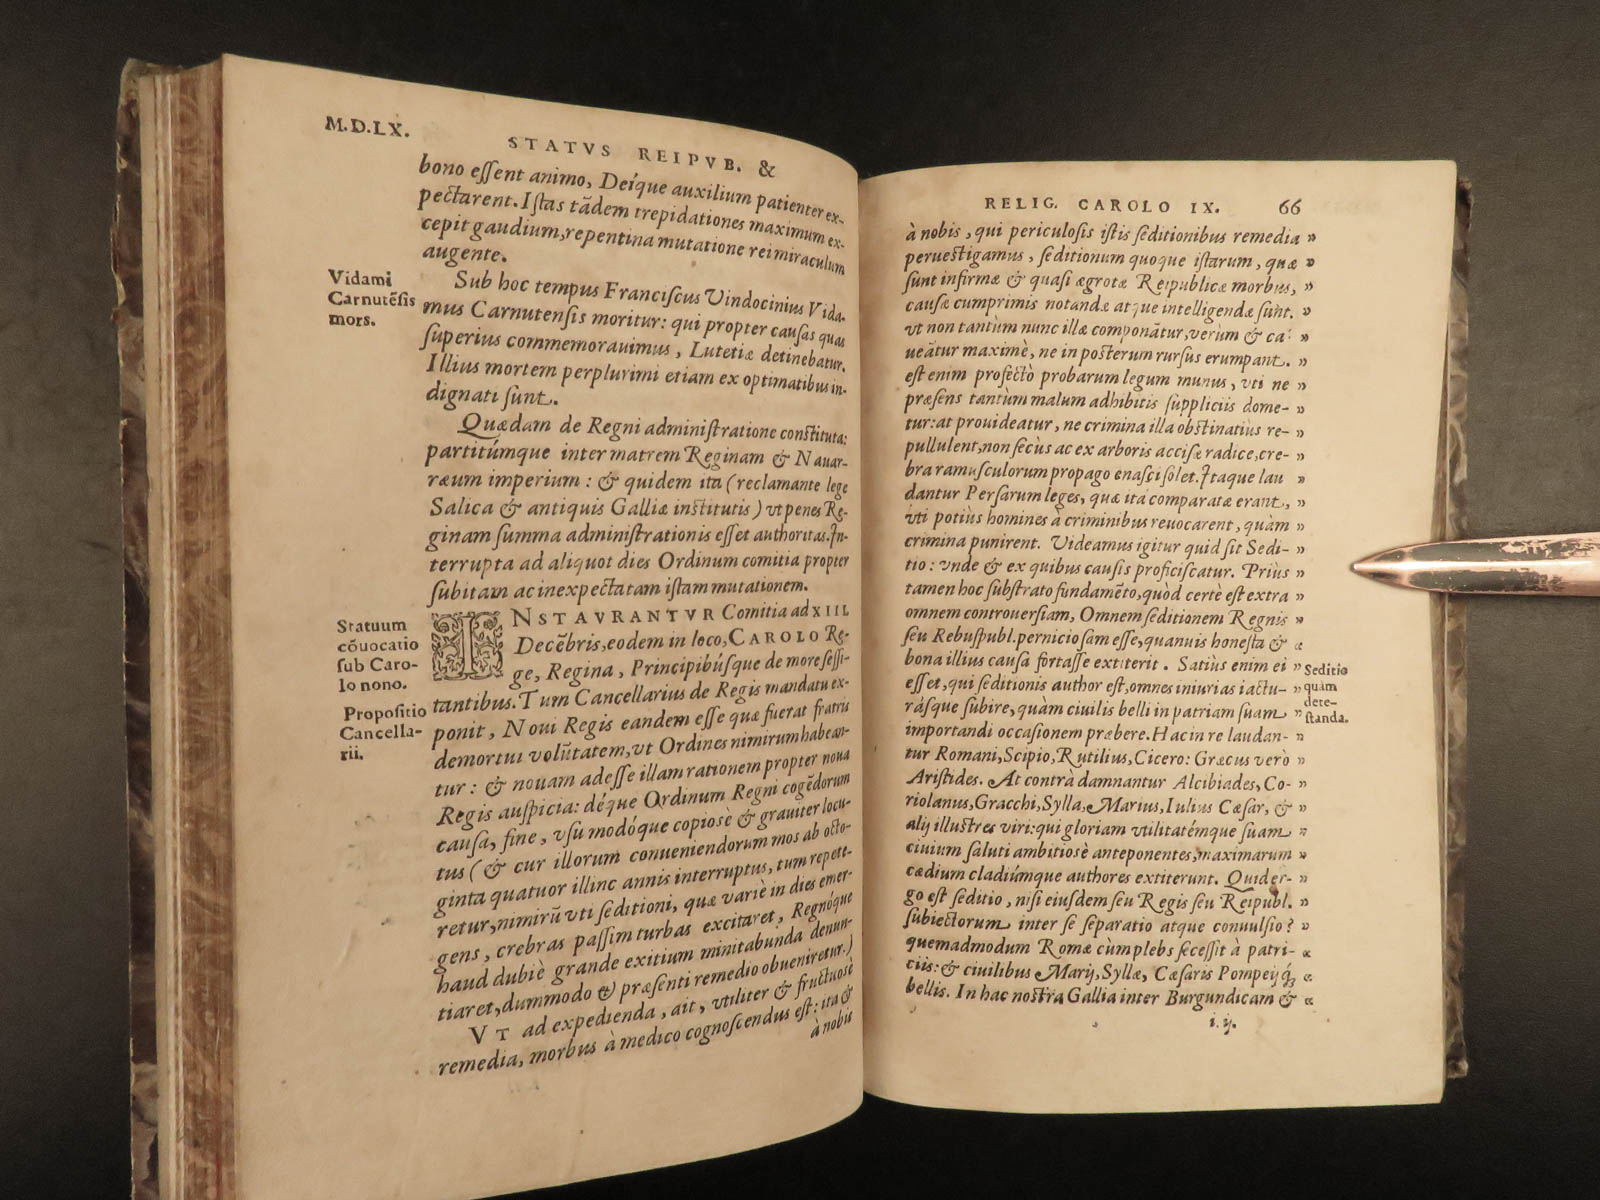 M.D.LX.
STATVS REIPVB. &
bono eſſent animo, Deíque auxilium patienter ex-
pectarent. Iſtas tādem trepidationes maximum ex-
cepit gaudium, repentina mutatione rei miraculum
augente.
Vidami
Carnutēſis
mors.
Sub hoc tempus Franciſcus Vindocinius Vida-
mus Carnutenſis moritur: qui propter cauſas quas
ſuperius commemorauimus, Lutetiæ detinebatur.
Illius mortem perplurimi etiam ex optimatibus in-
dignati ſunt.
Quædam de Regni adminiſtratione conſtituta:
partitúmque inter matrem Reginam & Nauar-
ræum imperium: & quidem ita (reclamante lege
Salica & antiquis Galliæ inſtitutis) vt penes Re-
ginam ſumma adminiſtrationis eſſet authoritas. In-
terrupta ad aliquot dies Ordinum comitia propter
ſubitam ac inexpectatam iſtam mutationem.
Statuum
cōuocatio
ſub Caro-
lo nono.
Propoſitio
Cancella-
rii.
INSTAVRANTVR Comitia ad XIII
Decēbris, eodem in loco, CAROLO Re-
ge, Regina, Principibúſque de more ſeſſi-
tantibus. Tum Cancellarius de Regis mandatu ex-
ponit, Noui Regis eandem eſſe quæ fuerat fratris
demortui volūtatem, vt Ordines nimirum habean-
tur: & nouam adeſſe illam rationem propter noua
Regis auſpicia: déque Ordinum Regni cogēdorum
cauſa, fine, vſu modóque copiosè & grauiter locu-
tus (& cur illorum conueniendorum mos ab octo-
ginta quatuor illinc annis interruptus, tum repete-
retur, nimirū vti ſeditioni, quæ variè in dies emer-
gens, crebras paſſim turbas excitaret, Regnóque
haud dubiè grande exitium minitabunda denun-
tiaret, dummodo & præſenti remedio obueniretur.)
VT ad expedienda, ait, vtiliter & fructuosè
remedia, morbus à medico cognoſcendus eſt: ita &
à nobis
RELIG. CAROLO IX. 66
à nobis, qui periculoſis iſtis ſeditionibus remedia »
perueſtigamus, ſeditionum quoque iſtarum, quæ »
ſunt infirmæ & quaſi ægrotæ Reipublicæ morbus, »
cauſæ cumprimis notandæ atque intelligendæ ſunt. »
vt non tantùm nunc illæ componātur, verùm & ca- »
ueātur maximè, ne in poſterum rurſus erumpant. »
eſt enim profectò probarum legum munus, vti ne »
præſens tantum malum adhibitis ſuppliciis dome- »
tur: at prouideatur, ne crimina illa obſtinatiùs re- »
pullulent, non ſecùs ac ex arboris acciſæ radice, cre- »
bra ramuſculorum propago enaſci ſolet. Itaque lau »
dantur Perſarum leges, quæ ita comparatæ erant, »
vti potiùs homines à criminibus reuocarent, quàm »
crimina punirent. Videamus igitur quid ſit Sedi- »
tio: vnde & ex quibus cauſis proficiſcatur. Priùs »
tamen hoc ſubſtrato fundamēto, quod certè eſt extra »
omnem controuerſiam, Omnem ſeditionem Regnis »
ſeu Rebuſpubl. pernicioſam eſſe, quanuis honeſta & «
bona illius cauſa fortaſſe extiterit. Satiùs enim ei »
eſſet, qui ſeditionis author eſt, omnes iniurias iactu- »
ráſque ſubire, quàm ciuilis belli in patriam ſuam »
importandi occaſionem præbere. Hac in re laudan- »
tur Romani, Scipio, Rutilius, Cicero: Græcus verò »
Ariſtides. At contrà damnantur Alcibiades, Co- »
riolanus, Gracchi, Sylla, Marius, Iulius Cæſar, & »
alij illuſtres viri: qui gloriam vtilitatémque ſuam »
ciuium ſaluti ambitiosè anteponentes, maximarum »
cædium cladiúmque authores extiterunt. Quid er- »
go eſt ſeditio, niſi eiuſdem ſeu Regis ſeu Reipubl. »
ſubiectorum inter ſe ſeparatio atque conuulſio? »
quemadmodum Romæ cùm plebs ſeceſſit à patri- «
ciis: & ciuilibus Marij, Syllæ, Cæſaris Pompeijq́; «
bellis. In hac noſtra Gallia inter Burgundicam & «
Seditio
quàm
dete-
ſtanda.
i.ij.